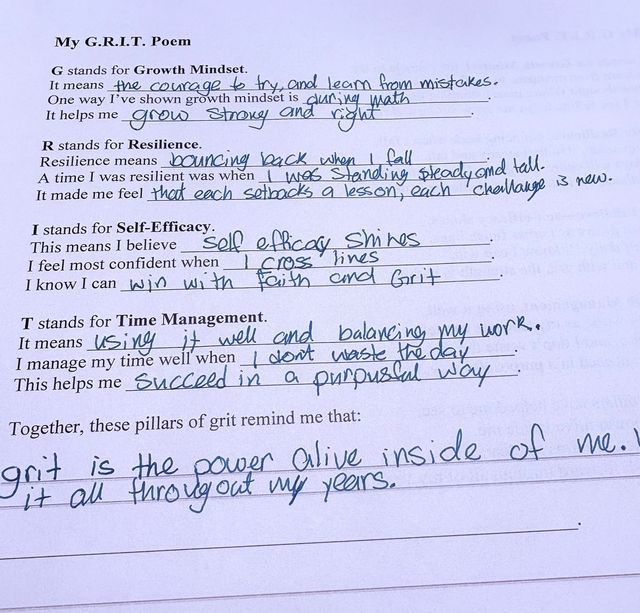 My G.R.I.T. Poem
G stands for Growth Mindset.
It means the courage to try, and learn from mistakes.
One way I've shown growth mindset is during math.
It helps me grow strong and right.
R stands for Resilience.
Resilience means bouncing back when I fall.
A time I was resilient was when I was standing steady and tall.
It made me feel that each setbacks a lesson, each challange is new.
I stands for Self-Efficacy.
This means I believe self efficacy shines.
I feel most confident when I cross lines.
I know I can win with faith and Grit.
T stands for Time Management.
It means using it well and balancing my work.
I manage my time well when I dont waste the day.
This helps me succeed in a purpusful way.
Together, these pillars of grit remind me that:
grit is the power alive inside of me.
it all througout my years.